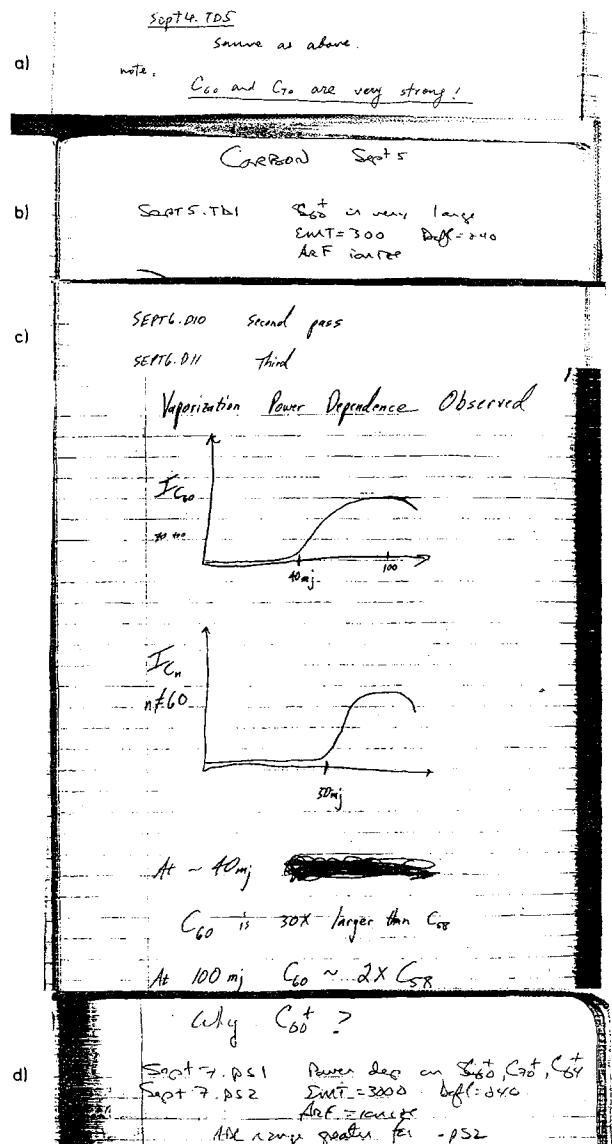 a)
Sept 4. TD5
same as above.
note.
C60 and C70 are very strong!
b)
CARBON Sept 5
Sept 5.TD1 C60+ is very large
EMT=300 Defl=240
ArF ionize
c)
SEPT6.D10 Second pass
SEPT6.D11 Third
Vaporization Power Dependence Observed
I C60
40mj 100
I Cn
n≠60
50mj
At ~ 40mj
C60 is 30X larger than C58
At 100 mj C60 ~ 2X C58
Why C60+ ?
d)
Sept 7.PS1 Power dep on C60+, C70+, C64+
Sept 7.PS2 EMT=3000 Defl=240
ArF = ionize
ADC range greater for -PS2